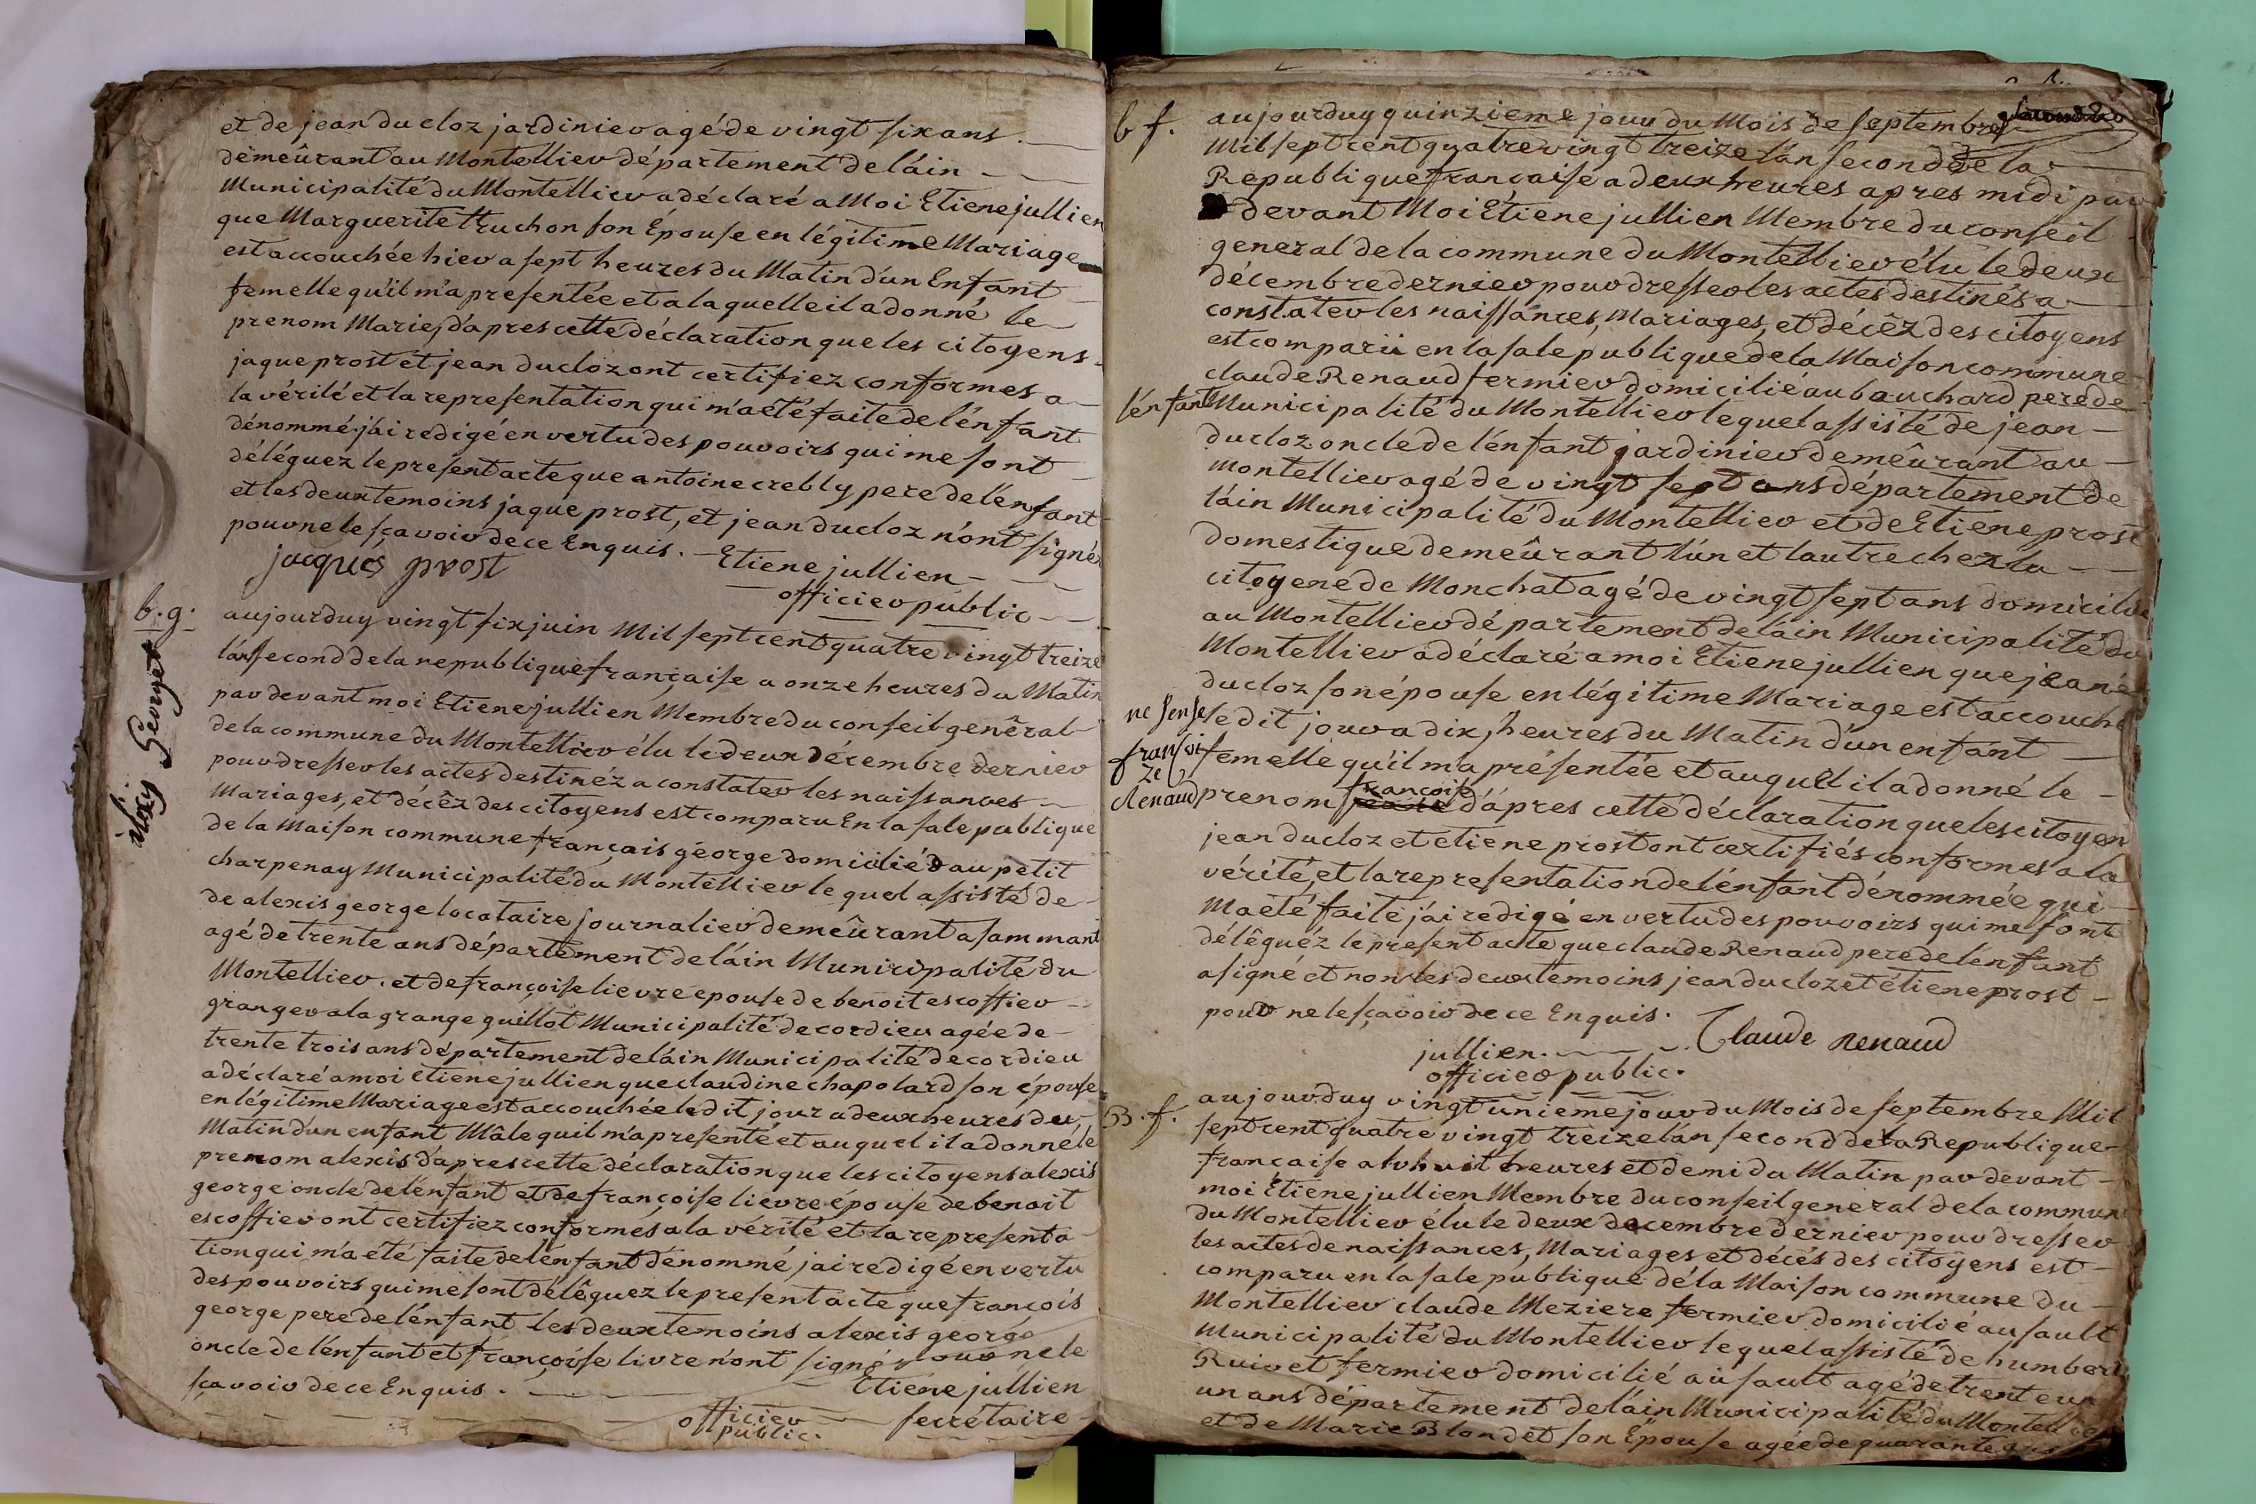 et de jean du cloz jardinier agé de vingt six ans.
demeûrant au Montellier département de láin
Municipalité du Montellier a déclaré a Moi Etiene jullien
que Marguerite truchon son Épouse en légitime Mariage
est accouchée hier a sept heures du Matin d'un Enfant
femelle qu'il m'a presentée et a la quelle il a donné le
prenom Marie, d'apres cette déclaration que les citoyens
jaque prost et jean du cloz ont certifiez conformes a
la vérité et la representation qui m'a été faite de lénfant
dénommé jái redigé en vertu des pouvoirs qui me sont
déléguez le present acte que antoine crebly pere de lénfant
et les deux temoins jaque prost, et jean du cloz n'ont signé
pour ne le sçavoir de ce Enquis.
Etiene jullien
jacques prost
officier public
b. g.
alexy Georget
aujourduy vingt six juin Mil sept cent quatre vingt treize
lán second de la republique française a onze heures du Matin
par devant moi Etiene jullien Membre du conseil genêral
de la commune du Montellier élu le deux décembre dernier
pour dresser les actes destinéz a constater les naissances
Mariages, et décêz des citoyens est comparu En la sale publique
de la Maison commune français géorge domicilié au petit
charpenay Municipalité du Montellier le quel assisté de
de alexis george locataire journalier demeûrant a sammant
agé de trente ans département de láin Municipalité du
Montellier. et de françoise lievre epouse de benoit escoffier
granger a la grange guillot Municipalité de cordieu agée de
trente trois ans département de láin Municipalité de cordieu
a déclaré a moi Etiene jullien que claudine chapolard son épouse
en légitime Mariage est accouchée le dit jour a deux heures du
Matin d'un enfant Mâle quil m'a presenté et au quel il a donné le
prenom alexis d'apres cette déclaration que les citoyens alexis
george oncle de lénfant et de françoise lievre épouse de benoit
escoffier ont certifiez conformés a la vérité et la representa
tion qui m'a été faite de lénfant dénommé jai redigé en vertu
des pouvoirs qui me sont délêguez le present acte que françois
george pere de lénfant, les deux temoins alexis george
oncle de lénfant et françoise livre n'ont signés pour ne le
sçavoir de ce Enquis.
Etiene jullien
officier public.
secrétaire
b f.
aujourduy quinzieme jour du Mois de septembre
Mil sept cent quatre vingt treize lán second de la
Republique française a deux heures apres midi par
devant Moi Étiene jullien Membre du conseil
general de la commune du Montellier élu le deux
décembre dernier pour dresser les actes destinés a
constater les naissances, Mariages, et décêz des citoyens
est comparu en la sale publique de la Maison commune
claude Renaud fermier domicilie au bauchard pere de
lénfant Municipalité du Montellier le quel assisté de jean
du cloz oncle de lénfant jardinier demeûrant au
Montellier agé de vingt sept ans département de
láin Municipalité du Montellier et de Etiene prost
domestique demeûrant lún et lautre chez la
citoyene de Monchat agé de vingt sept ans domicilié
au Montellier département de láin Municipalité du
Montellier a déclaré a moi Etiene jullien que jeane
du cloz son épouse en légitime Mariage est accouché
le dit jour a dix heures du Matin d'un enfant
femelle qu'il m'a présentée et au quel il a donné le
prenom françoise d'ápres cette déclaration que les citoyen
jean du cloz et etiene prost ont certifiés conformes a la
vérité, et la representation de lénfant dénommée qui
Ma été faite jái redigé en vertu des pouvoirs qui me sont
délêguéz le present acte que claude Renaud pere de lénfant
a signé et non les deux temoins jean du cloz et étiene prost
pour ne le sçavoir de ce Enquis.
fransoi
ze
Renaud
jullien.
Claude Renaud
officier public.
B. f.
aujourduy vingt unieme jour du Mois de septembre Mil
sept cent quatre vingt treize lán second de la Republique
française a huit heures et demi du Matin par devant
moi Etiene jullien Membre du conseil general de la commune
du Montellier élu le deux decembre dernier pour dresser
les actes de naissances, Mariages et décés des citoyens est
comparu en la sale publique de la Maison commune du
Montellier claude Meziere fermier domicilié au sault
Municipalité du Montellier le quel assisté de humbert
Ruivet fermier domicilié au sault agé de trente un
un ans département de láin Municipalité du Montellier
et de Marie Blondet son Épouse agée de quarante ans